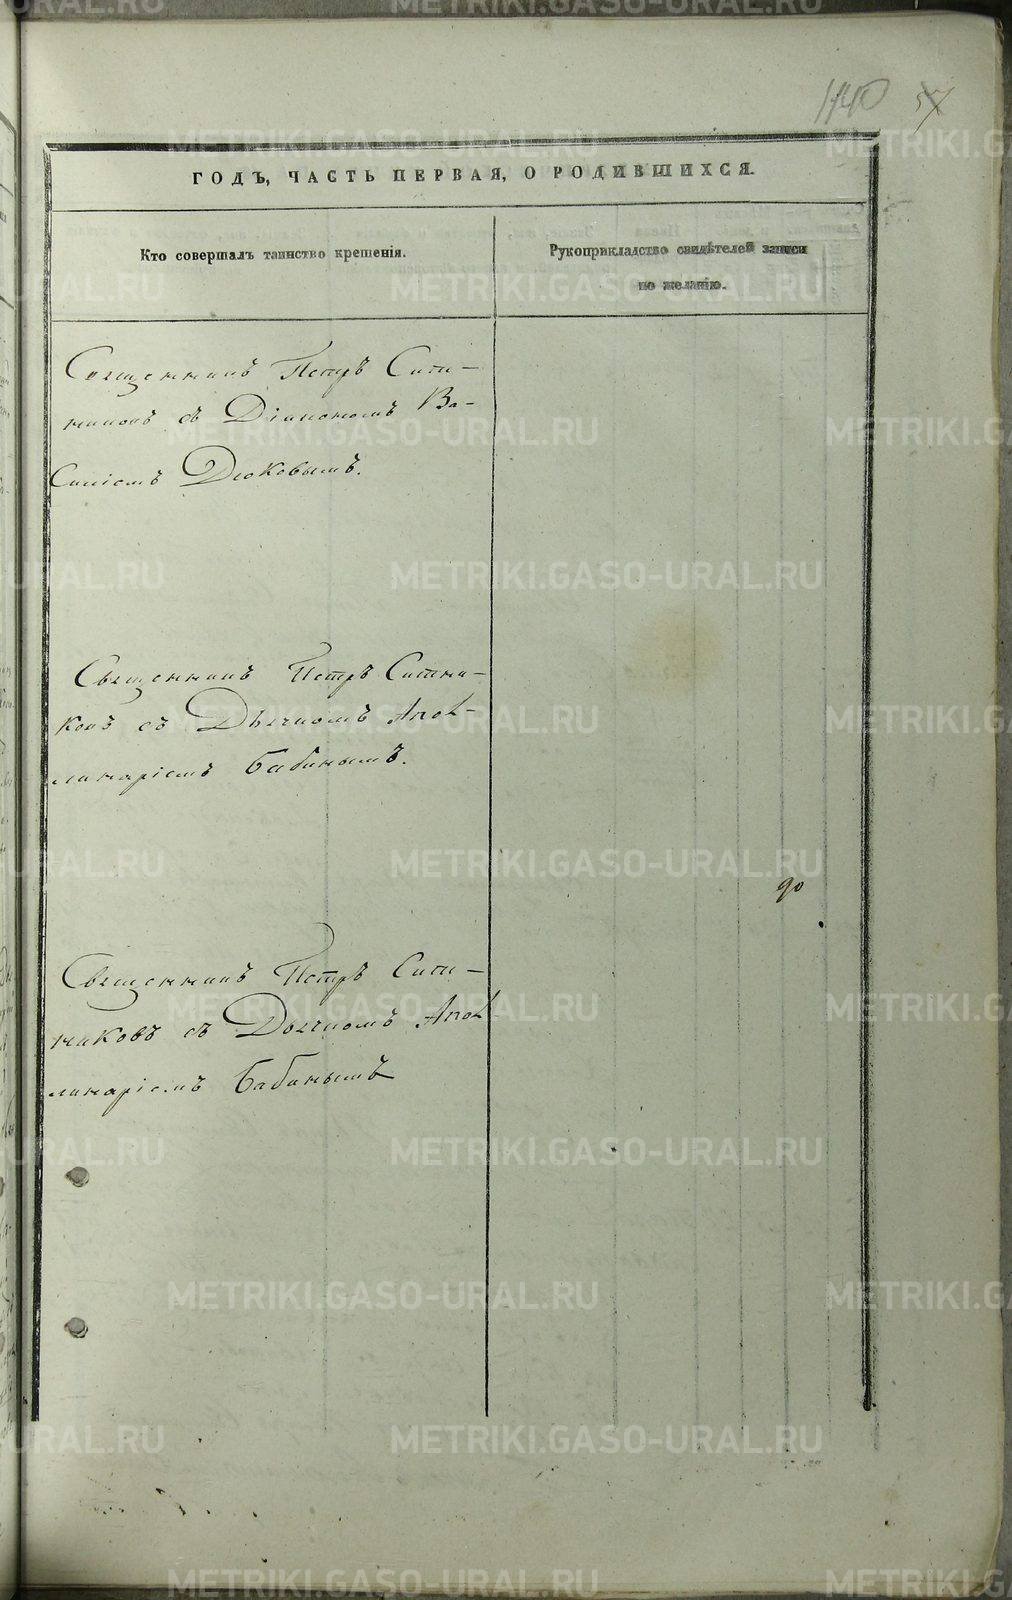 140 57
ГОДЪ, ЧАСТЬ ПЕРВАЯ, О РОДИВШИХСЯ.
Кто совершалъ таинство крещенія.
Рукоприкладство свидѣтелей записи
по желанію.
Священникъ Петръ Сит-
никовъ съ Діакономъ Ва-
силіемъ Дюковымъ.
Священникъ Петръ Ситни-
ковъ съ Дьячкомъ Апол-
линаріемъ Бабинымъ.
90
Священникъ Петръ Сит-
никовъ съ Дьячкомъ Апол
линаріемъ Бабинымъ
METRIKI.GASO-URAL.RU